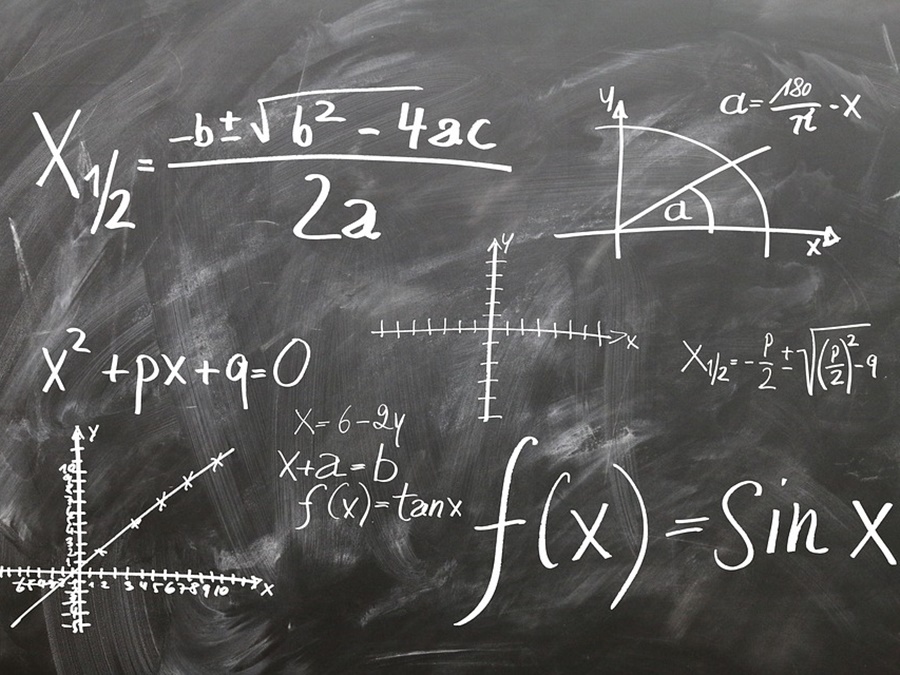 X1/2 = (-b ± √(b² - 4ac)) / 2a
y
a = 180/π · x
a
x
y
x
x² + px + q = 0
X1/2 = -p/2 ± √((p/2)² - q)
x = 6 - 2y
x + a = b
f(x) = tan x
f(x) = Sin x
y
x
1 2 3 4 5 6 7 8 9 10